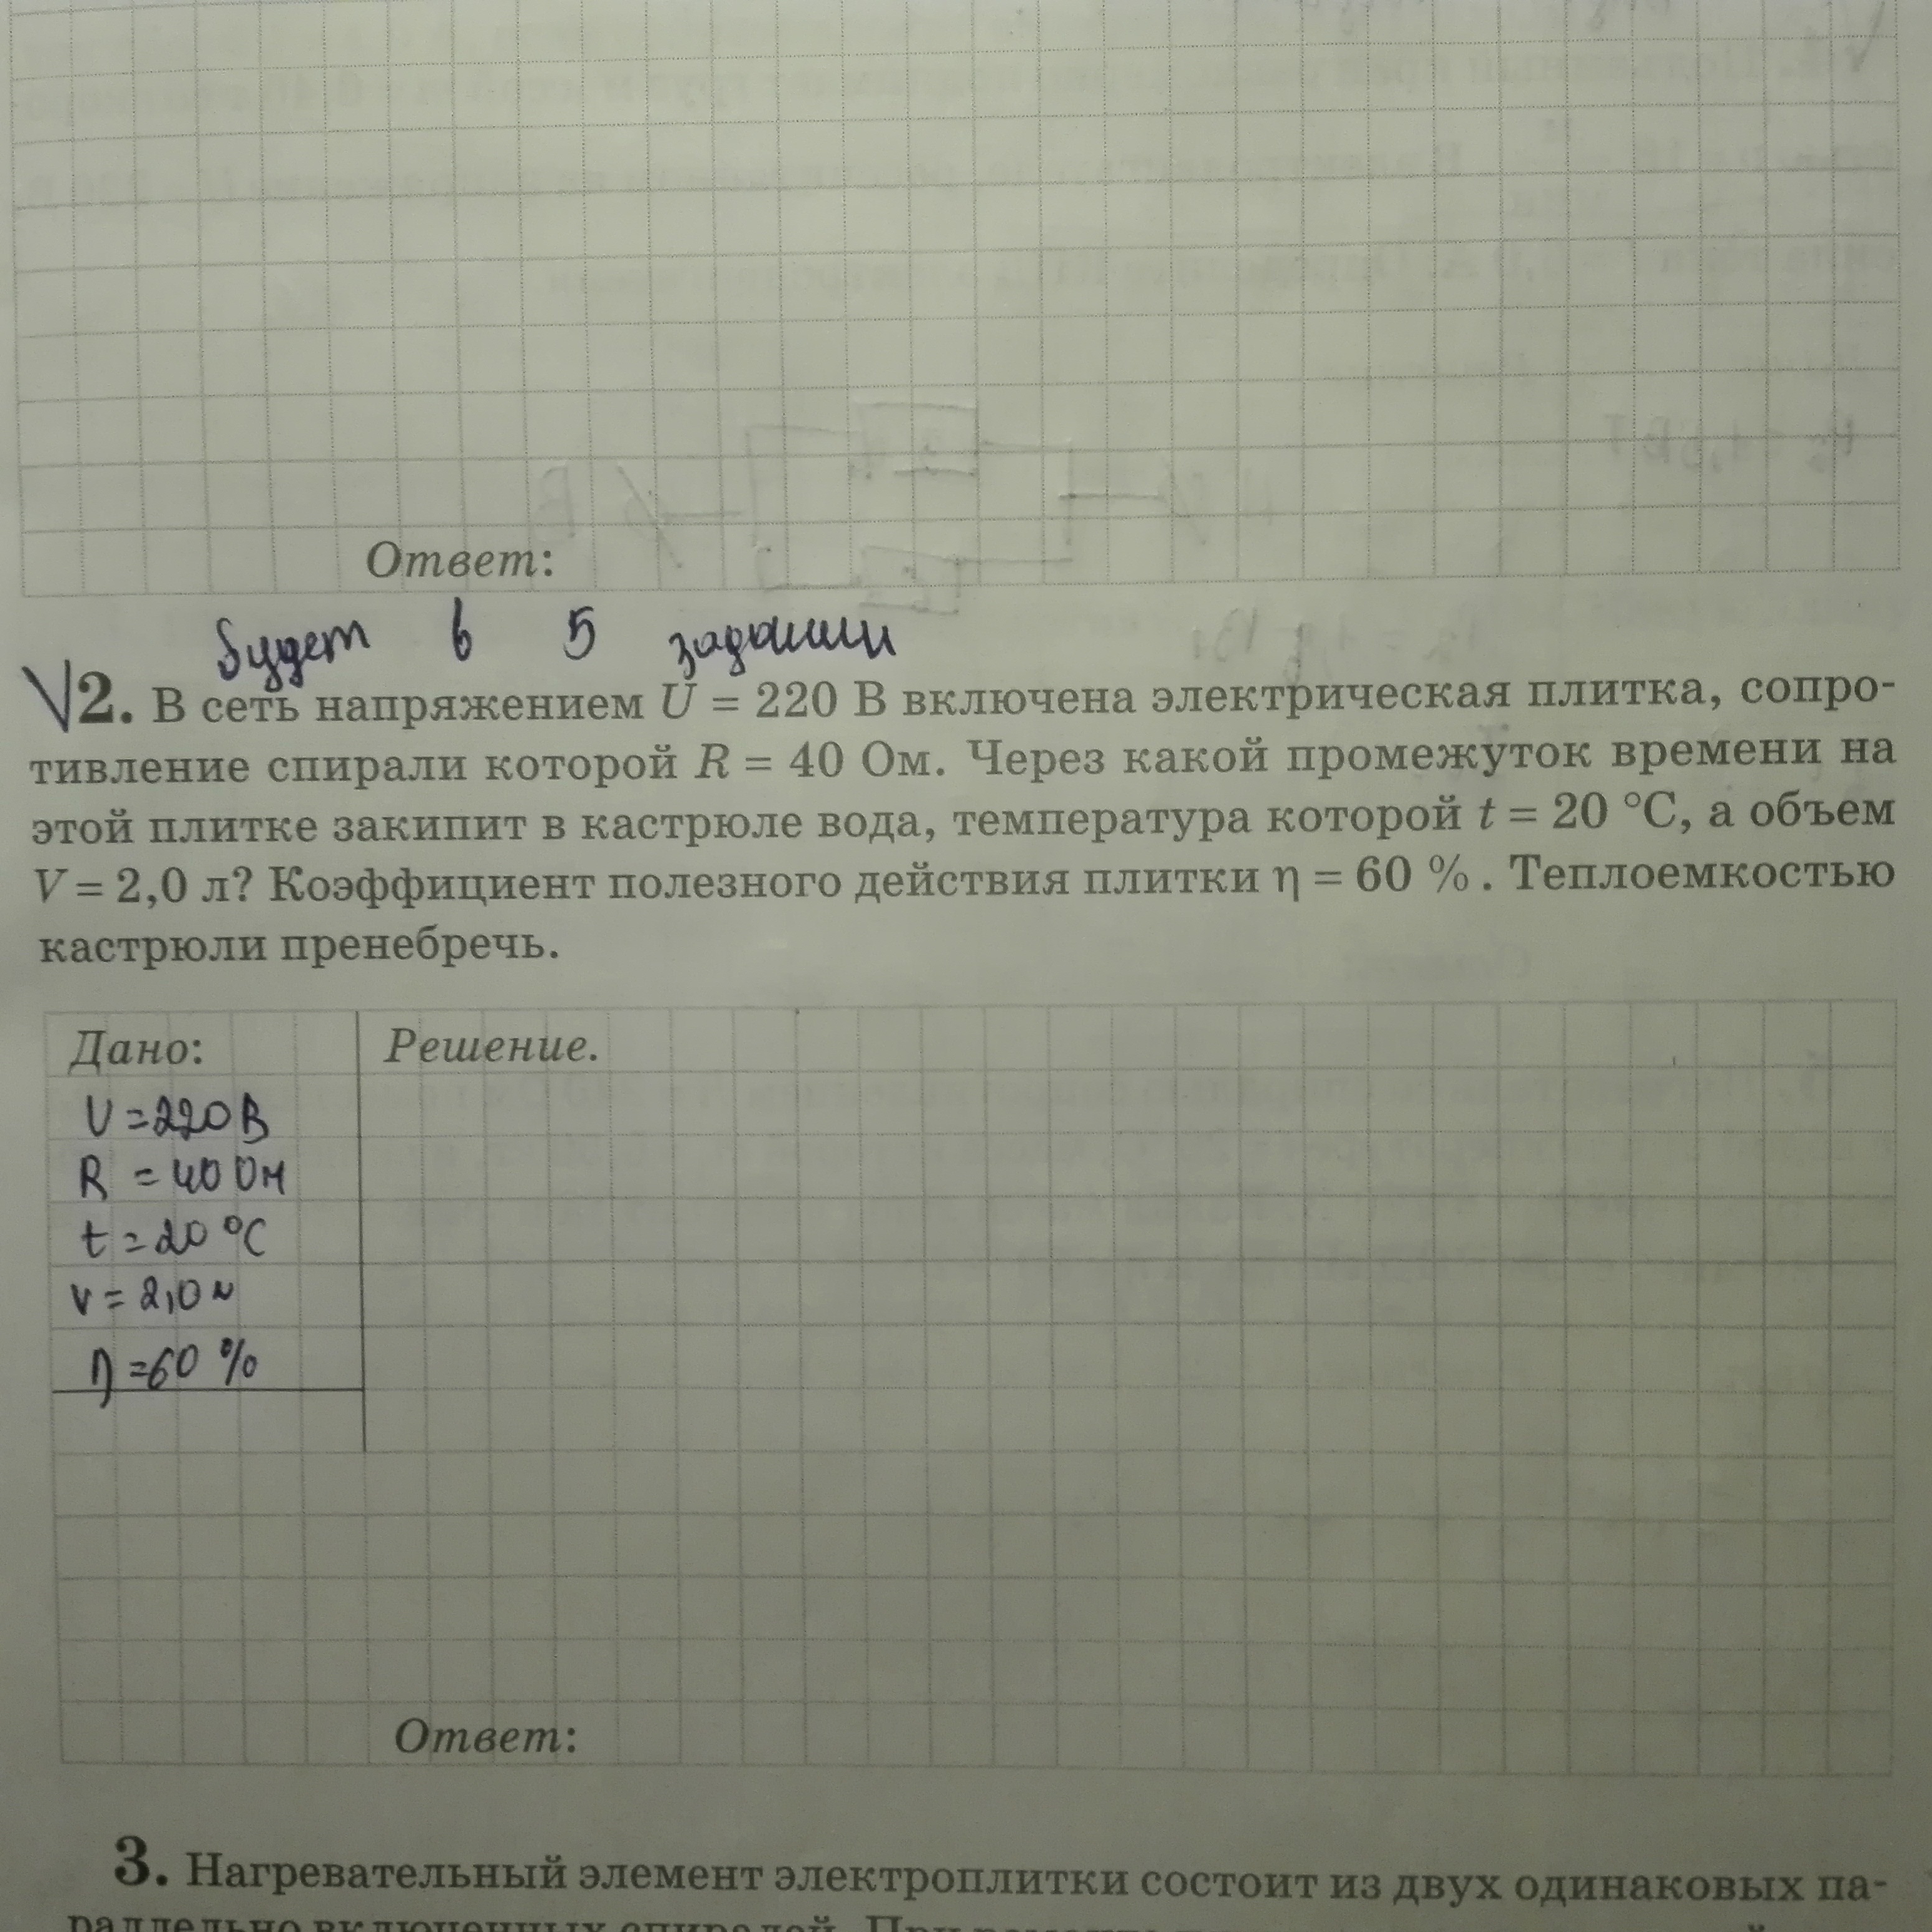 Ответ:
Будет в 5 задании
√2. В сеть напряжением U = 220 В включена электрическая плитка, сопро-
тивление спирали которой R = 40 Ом. Через какой промежуток времени на
этой плитке закипит в кастрюле вода, температура которой t = 20 °C, а объем
V = 2,0 л? Коэффициент полезного действия плитки η = 60 %. Теплоемкостью
кастрюли пренебречь.
Дано: Решение.
U = 220 В
R = 40 Ом
t = 20 °C
V = 2,0 л
η = 60 %
Ответ:
3. Нагревательный элемент электроплитки состоит из двух одинаковых па-
раллельно включенных спиралей. При